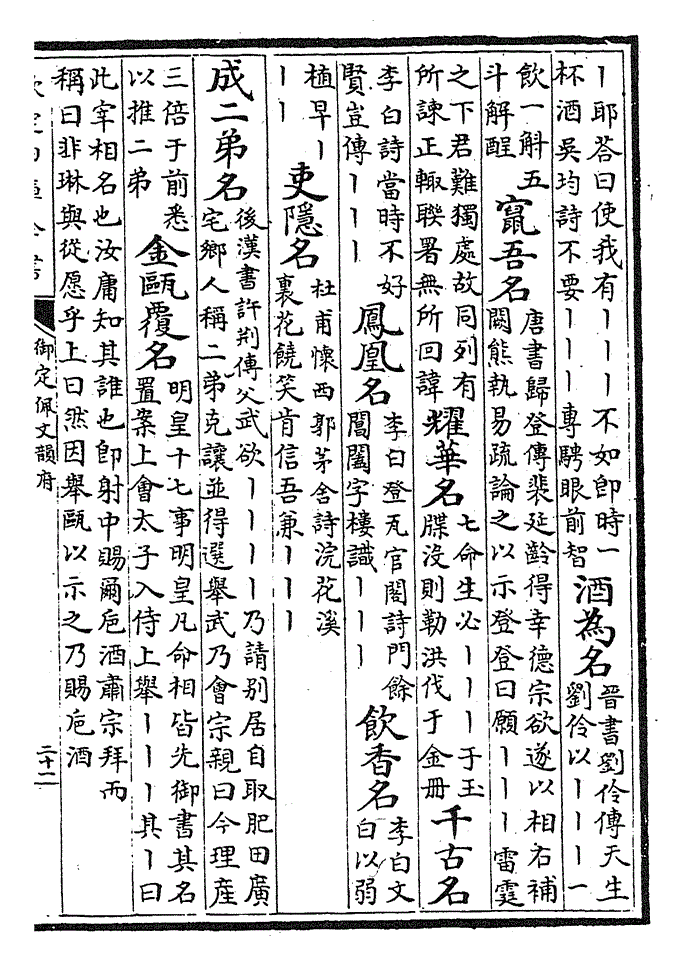 丨耶荅曰使我有丨丨丨不如即時一
杯酒吳均詩不要丨丨丨專騁眼前智
酒為名
晉書劉伶傳天生
劉伶以丨丨丨一
飲一斛五
斗解酲
竄吾名
唐書歸登傳裴延齡得幸德宗欲遂以相右補
闕熊執易疏論之以示登登曰願丨丨丨雷霆
之下君難獨處故同列有
所諫正輙聨署無所回諱
耀華名
七命生必丨丨丨于玉
牒沒則勒洪伐于金册
千古名
李白詩當時不好
賢豈傳丨丨丨
鳳凰名
李白登瓦官閣詩門餘
閶闔字樓識丨丨丨
飲香名
李白文
白以弱
植早丨
丨丨
吏隱名
杜甫懷西郭茅舍詩浣花溪
裏花饒笑肯信吾兼丨丨丨
成二弟名
後漢書許荆傳父武欲丨丨丨丨乃請别居自取肥田廣
宅鄉人稱二弟克讓並得選舉武乃會宗親曰今理産
三倍于前悉
以推二弟
金甌覆名
明皇十七事明皇凡命相皆先御書其名
置案上會太子入侍上舉丨丨丨其丨曰
此宰相名也汝庸知其誰也即射中賜爾巵酒肅宗拜而
稱曰非琳與從愿乎上曰然因舉甌以示之乃賜巵酒
欽定四庫全書
御定佩文韻府
二十二